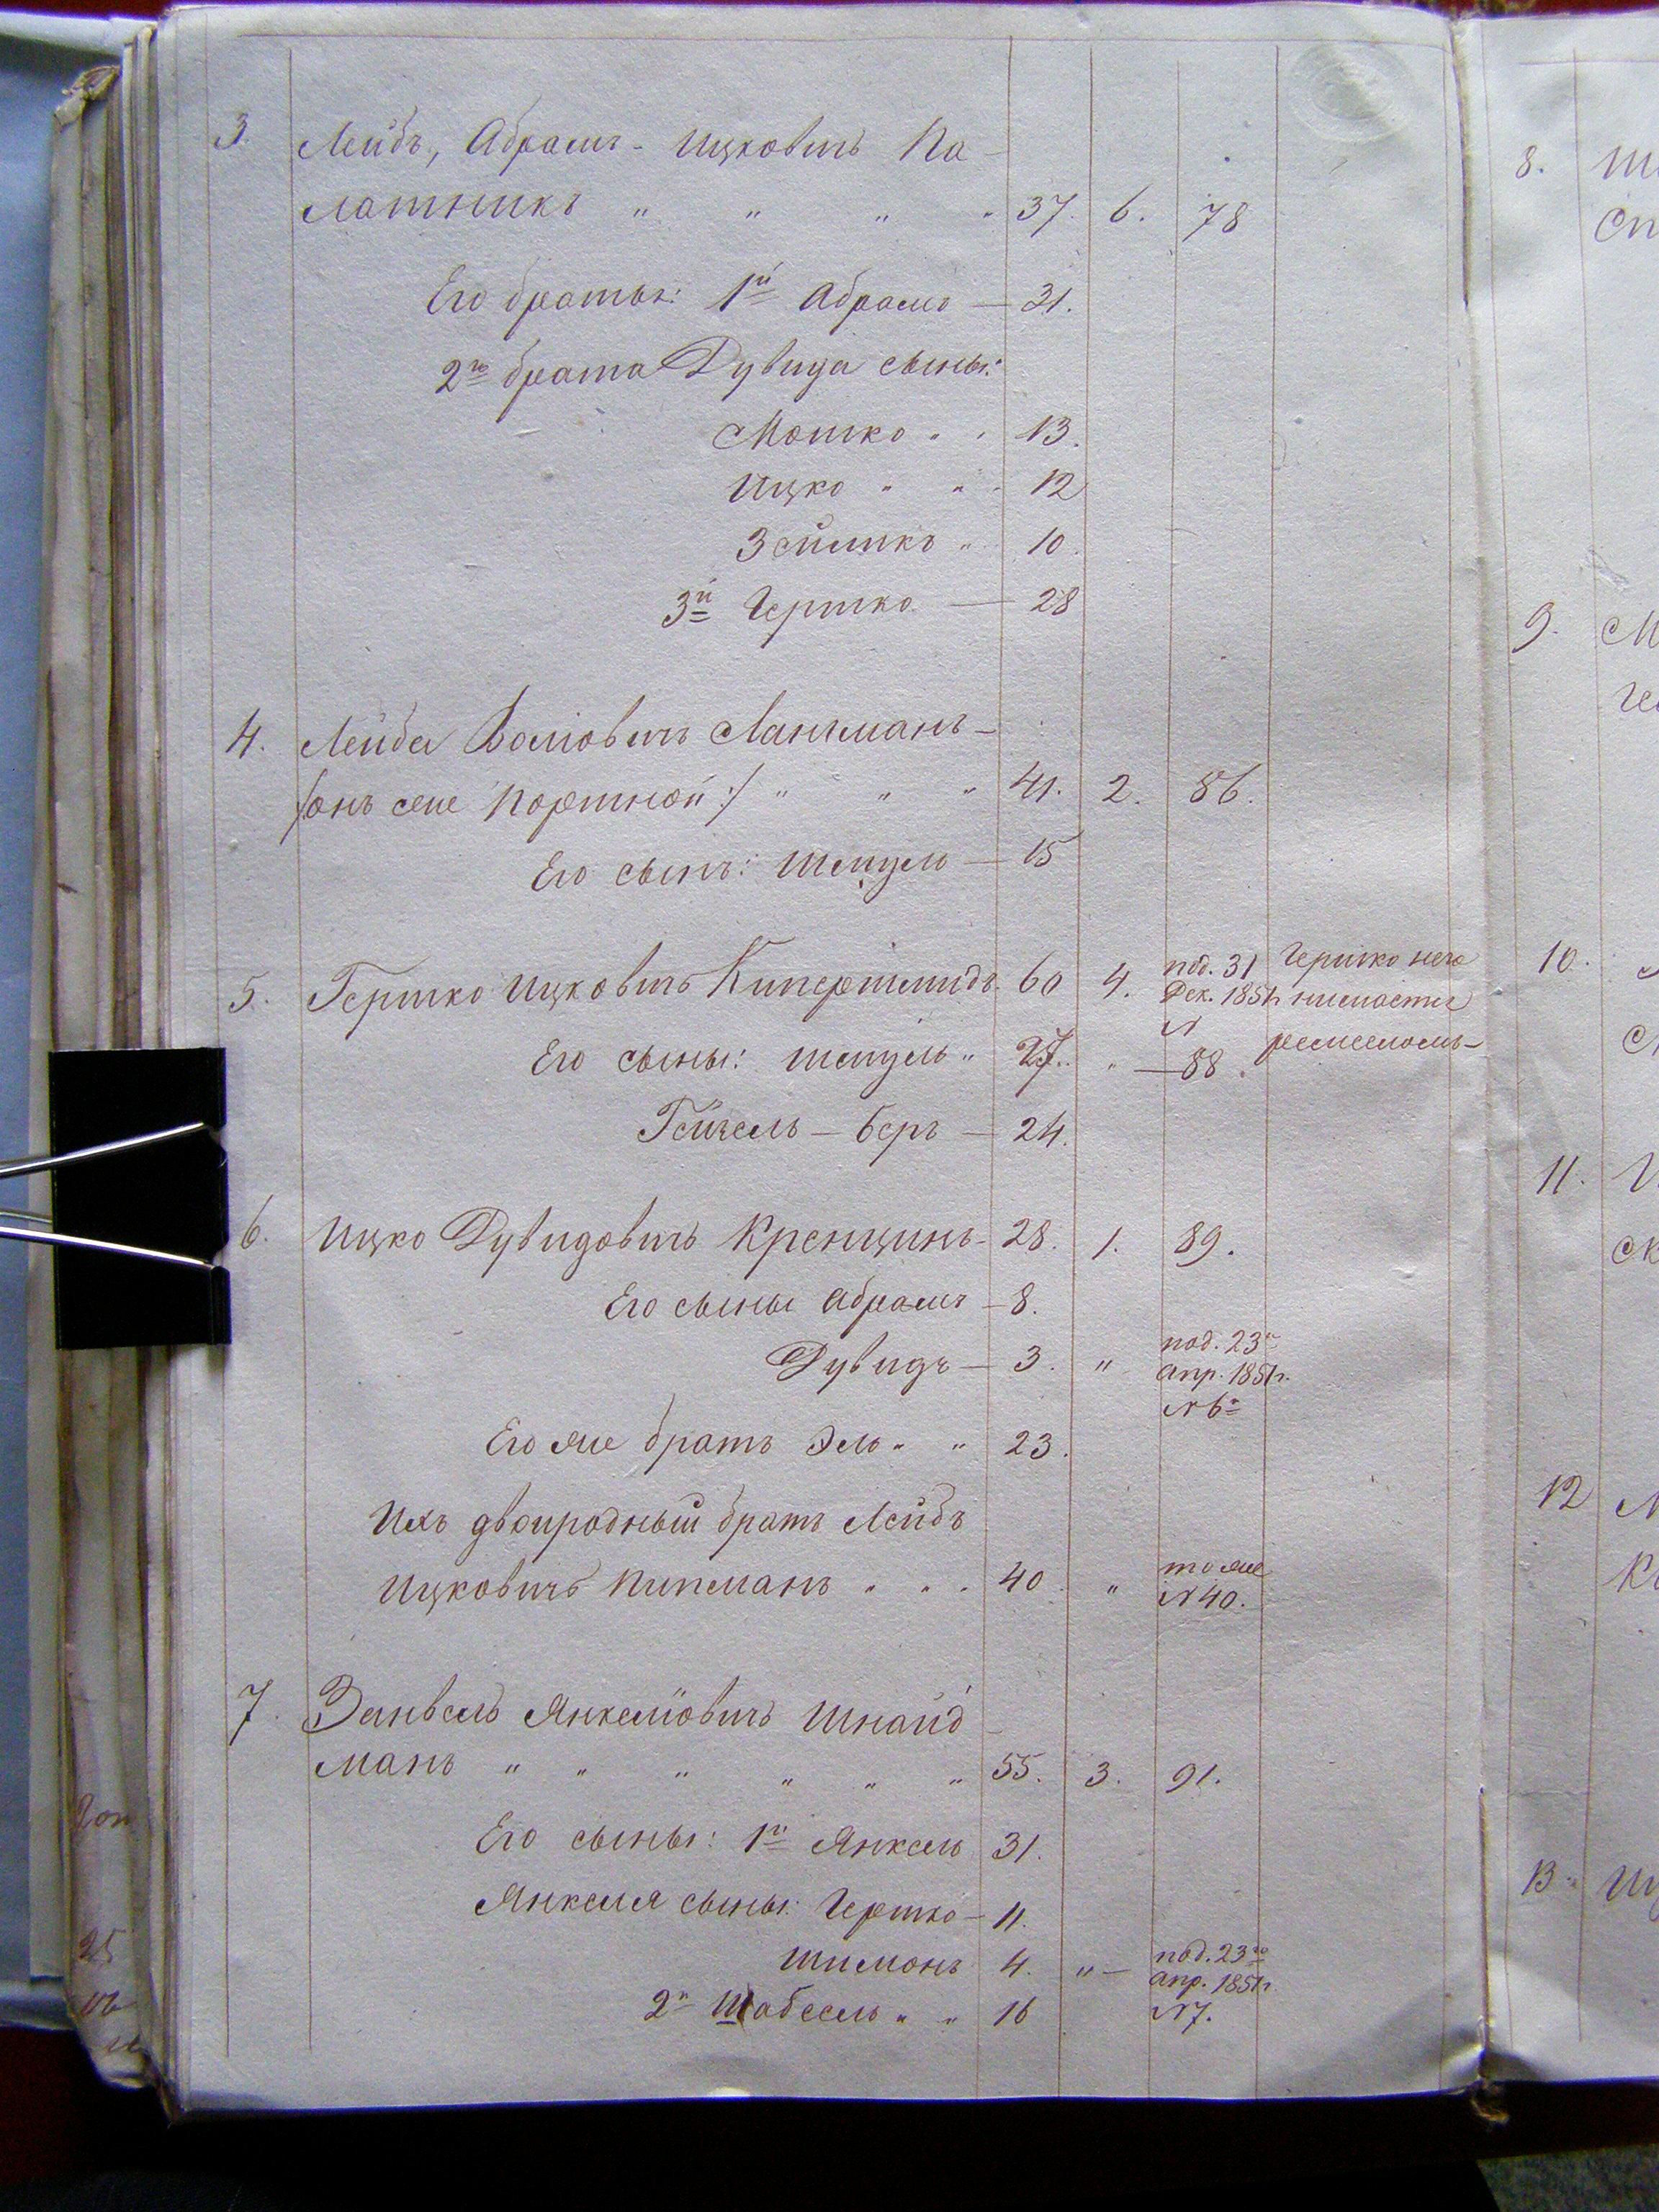 3. Лейбъ, Абрамъ - Ицковичъ Па-
латникъ " " " " 37. 6. 78
Его братья: 1й Абрамъ — 31.
2го брата Дувида сыны:
Мошко " " 13.
Ицко " " " 12
Зейликъ " 10.
3й Гершко — 28
4. Лейба Волковичъ Лангманъ —
/онъ же Портной:/ " " " 41. 2. 86.
Его сынъ: Шмуль — 15
5. Гершко Ицковичъ Купершмидъ. 60 4. под. 31 Гершко не за
Дек. 1851г нимается
N ремесломъ —
Его сыны: Шмуль " 27. " — 88.
Гейчель — Беръ — 24.
6. Ицко Дувидовичъ Кренцинъ — 28. 1. 89.
Его сыны Абрамъ — 8.
Дувидъ — 3. " под. 23го
Апр. 1851г.
N 6й
Его же братъ Эль " " 23.
Ихъ двоиродный братъ Лейбъ
Ицковичъ Кипманъ " " " 40. " то же
N 40.
7. Занвель Янкеліовичъ Шнайд-
манъ " " " " " " 55. 3. 91.
Его сыны: 1й Янкель 31.
Янкеля сыны: Гершко — 11.
Шимонъ 4. " — под. 23го
Апр. 1851г
2й Шабсель " " 16 N 7.
8.
9.
10.
11.
12
13.